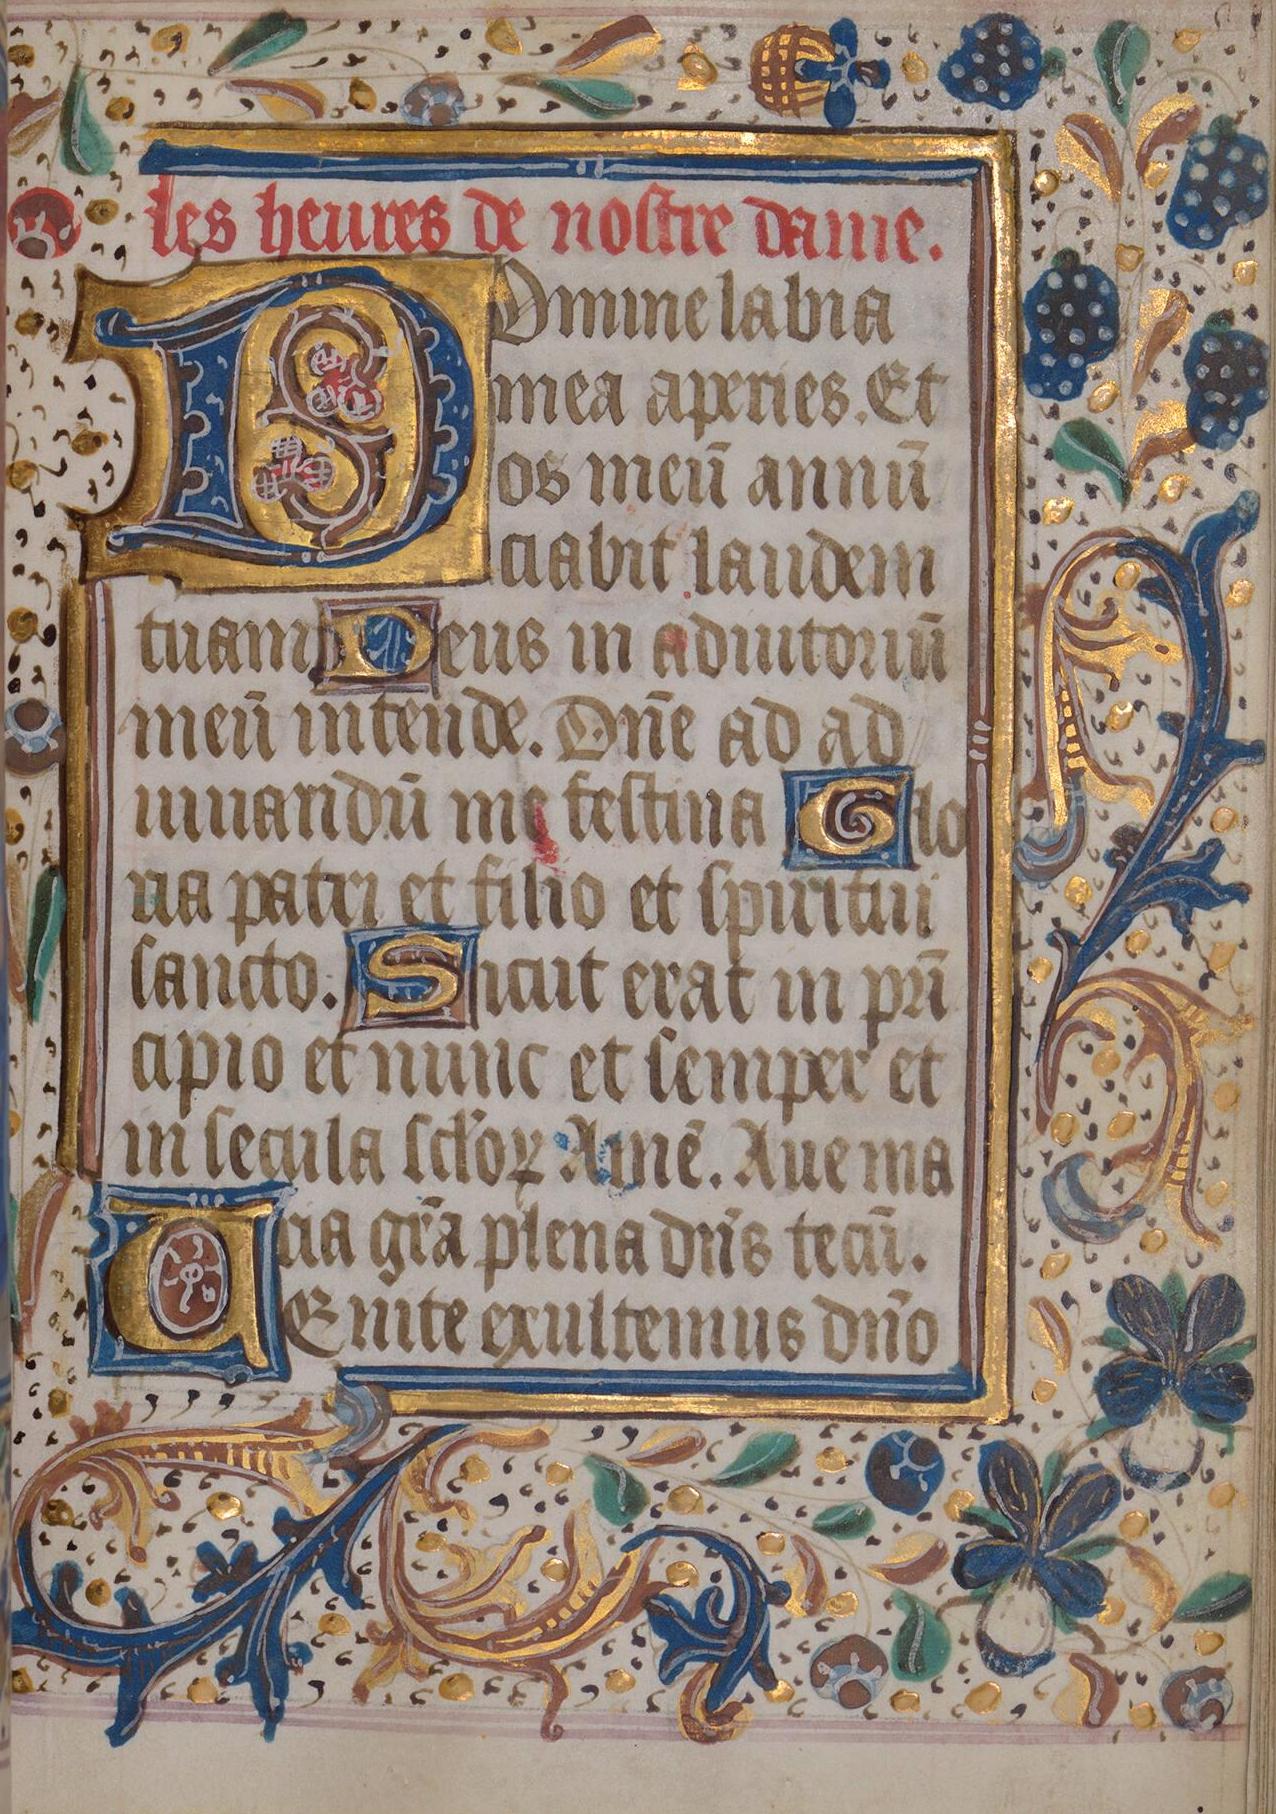 les heures de nostre dame.
Domine labia
mea aperies. Et
os meū annū
ciabit laudem
tuam Deus in adiutoriū
meū intende. Dn̄e ad ad
iuuandū me festina Glo
ria patri et filio et spiritui
sancto. Sicut erat in prī
cipio et nunc et semper et
in secula sc̄loꝝ Amē. Aue ma
ria gr̄a plena dn̄s tecū.
UEnite exultemus dn̄o